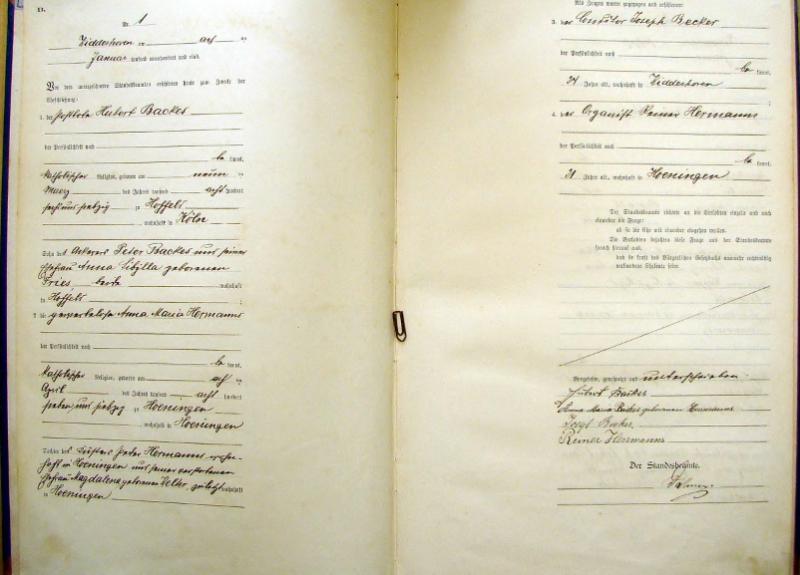 Nr. 1
Januar tausend neunhundert und eins.
Vor dem unterzeichneten Standesbeamten erschienen heute zum Zwecke der
Eheschließung:
1. der Hubert Backes
der Persönlichkeit nach
kannt,
katholischer Religion, geboren am neun ten
März des Jahres tausend acht hundert
zu Hoffeld
wohnhaft in Köln
Sohn des Ackerers Peter Backes und seiner
Ehefrau Anna Sibylla geborenen
Fries, beide wohnhaft
in Hoffeld
2. die gewerbelose Anna Maria Hermanns
der Persönlichkeit nach
kannt,
katholischer Religion, geboren am
April des Jahres tausend acht hundert
sieben und siebzig zu Hoeningen
wohnhaft in Hoeningen
Tochter des Peter Hermanns
in Hoeningen und seiner verstorbenen
Ehefrau Magdalena geborenen zuletzt wohnhaft
in Hoeningen
Als Zeugen waren zugezogen und erschienen:
3. der Joseph Becker
der Persönlichkeit nach
kannt,
34 Jahre alt, wohnhaft in
4. der Organist Reiner Hermanns
der Persönlichkeit nach
kannt,
31 Jahre alt, wohnhaft in Hoeningen
Der Standesbeamte richtete an die Verlobten einzeln und nach
einander die Frage:
ob sie die Ehe mit einander eingehen wollen.
Die Verlobten bejahten diese Frage und der Standesbeamte
sprach hierauf aus,
daß sie kraft des Bürgerlichen Gesetzbuchs nunmehr rechtmäßig
verbundene Eheleute seien.
Vorgelesen, genehmigt und unterschrieben
Hubert Backes
Anna Maria Backes geborenen Hermanns
Josef Becker
Reiner Hermanns
Der Standesbeamte.